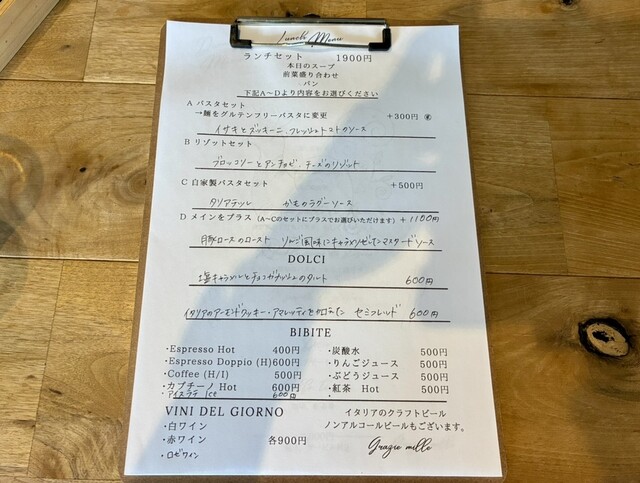 Lunch Menu
ランチセット 1900円
本日のスープ
前菜盛り合わせ
パン
下記A～Dより内容をお選びください
A パスタセット
→麺をグルテンフリーパスタに変更 +300円
イサキとズッキーニ、フレッシュトマトのソース
B リゾットセット
ブロッコリーとアンチョビ、チーズのリゾット
C 自家製パスタセット +500円
タリアテッレ かものラグーソース
D メインをプラス (A～Cのセットにプラスでお選びいただけます) +1100円
豚ロースのロースト りんご風味にキャラメリゼしたマスタードソース
DOLCI
塩キャラメルとチョコガナッシュのタルト 600円
イタリアのアーモンドクッキー・アマレッティを加えた セミフレッド 600円
BIBITE
・Espresso Hot 400円
・Espresso Doppio (H) 600円
・Coffee (H/I) 500円
・カプチーノ Hot 600円
・アイスラテ Ice 600円
・炭酸水 500円
・りんごジュース 500円
・ぶどうジュース 500円
・紅茶 Hot 500円
・
VINI DEL GIORNO
・白ワイン
・赤ワイン 各900円
・ロゼワイン
イタリアのクラフトビール
ノンアルコールビールもございます。
Grazie mille